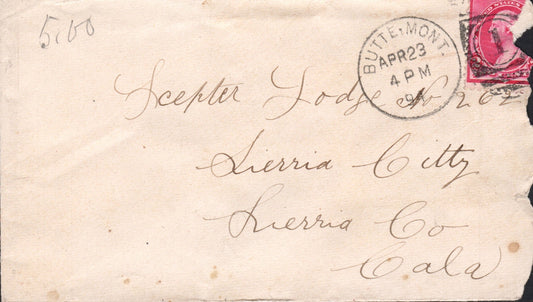 5.00
BUTTE, MONT.
APR 23
4 PM
Scepter Lodge No 202
Sierria Citty
Sierria Co
Cala